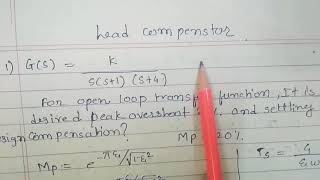 Lead compenstor.
1) G(s) = K
S(S+1) (S+4)
For open loop transfer function, It is
desired peak overshoot and settling
design compensation? Mp 20%
Mp = e^-πξ/√1-ξ² τs = 4
ξω